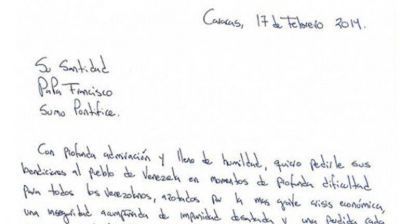 Caracas, 17 de Febrero 2014.
Su Santidad
Papa Francisco
Sumo Pontífice.
Con profunda admiración y lleno de humildad, quiero pedirle sus
bendiciones al pueblo de Venezuela en momentos de profunda dificultad
para todos los venezolanos, azotados por la mas grave crisis económica,
una inseguridad acompañada de impunidad desatada y una perdida cada